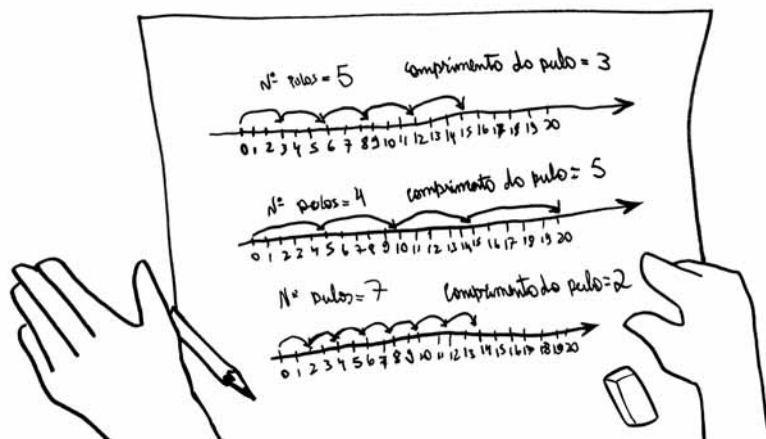 Nº pulos = 5 comprimento do pulo = 3
0 1 2 3 4 5 6 7 8 9 10 11 12 13 14 15 16 17 18 19 20
Nº pulos = 4 comprimento do pulo = 5
0 1 2 3 4 5 6 7 8 9 10 11 12 13 14 15 16 17 18 19 20
Nº pulos = 7 comprimento do pulo = 2
0 1 2 3 4 5 6 7 8 9 10 11 12 13 14 15 16 17 18 19 20